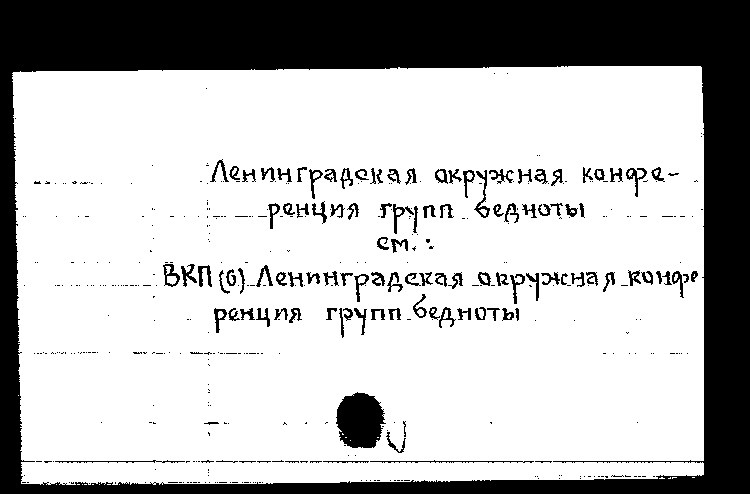 Ленинградская окружная конфе-
ренция групп бедноты
см.:
ВКП(б) Ленинградская окружная конфе-
ренция групп бедноты